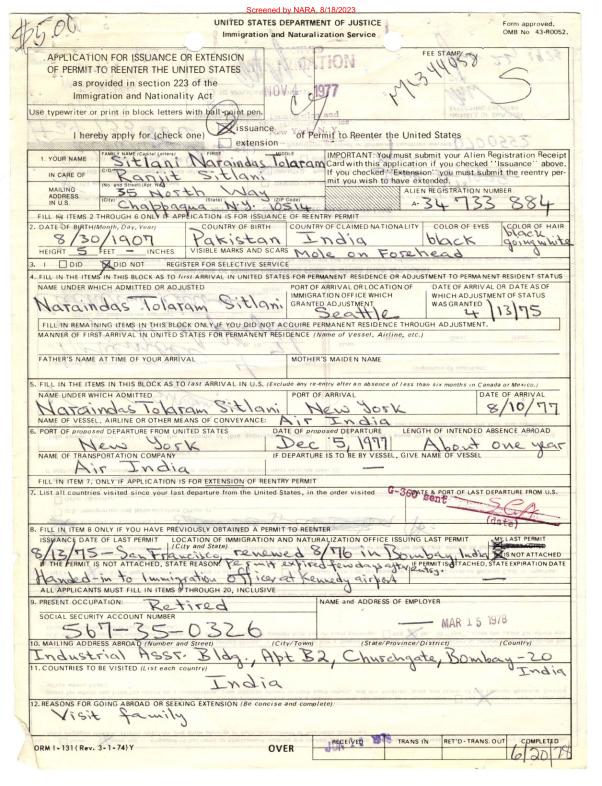 Screened by NARA, 8/18/2023
$5.00
UNITED STATES DEPARTMENT OF JUSTICE
Immigration and Naturalization Service
Form approved.
OMB No 43-R0052.
APPLICATION FOR ISSUANCE OR EXTENSION
OF PERMIT TO REENTER THE UNITED STATES
as provided in section 223 of the
Immigration and Nationality Act
FEE STAMP
NOV 1977
Use typewriter or print in block letters with ball-point pen.
I hereby apply for (check one) issuance of Permit to Reenter the United States
extension
1. YOUR NAME FAMILY NAME (Capital Letters) FIRST MIDDLE
Sitlani Naraindas Tolaram
IMPORTANT: You must submit your Alien Registration Receipt
Card with this application if you checked "Issuance" above.
If you checked "Extension" you must submit the reentry per-
mit you wish to have extended.
IN CARE OF C/O Ranjit Sitlani
MAILING ADDRESS IN U.S. (No. and Street) (Apt. No.) 35 North Way
(City) (State) (ZIP Code) Chappaqua N.Y. 10514
ALIEN REGISTRATION NUMBER
A- 34 733 884
FILL IN ITEMS 2 THROUGH 6 ONLY IF APPLICATION IS FOR ISSUANCE OF REENTRY PERMIT
2. DATE OF BIRTH (Month, Day, Year) COUNTRY OF BIRTH COUNTRY OF CLAIMED NATIONALITY COLOR OF EYES COLOR OF HAIR
8/30/1907 Pakistan India black black going white
HEIGHT 5 FEET - INCHES VISIBLE MARKS AND SCARS Mole on Forehead
3. I DID DID NOT REGISTER FOR SELECTIVE SERVICE
4. FILL IN THE ITEMS IN THIS BLOCK AS TO first ARRIVAL IN UNITED STATES FOR PERMANENT RESIDENCE OR ADJUSTMENT TO PERMANENT RESIDENT STATUS
NAME UNDER WHICH ADMITTED OR ADJUSTED PORT OF ARRIVAL OR LOCATION OF IMMIGRATION OFFICE WHICH GRANTED ADJUSTMENT DATE OF ARRIVAL OR DATE AS OF WHICH ADJUSTMENT OF STATUS WAS GRANTED
Naraindas Tolaram Sitlani Seattle 4/13/75
FILL IN REMAINING ITEMS IN THIS BLOCK ONLY IF YOU DID NOT ACQUIRE PERMANENT RESIDENCE THROUGH ADJUSTMENT.
MANNER OF FIRST ARRIVAL IN UNITED STATES FOR PERMANENT RESIDENCE (Name of Vessel, Airline, etc.)
FATHER'S NAME AT TIME OF YOUR ARRIVAL MOTHER'S MAIDEN NAME
5. FILL IN THE ITEMS IN THIS BLOCK AS TO last ARRIVAL IN U.S. (Exclude any re-entry after an absence of less than six months in Canada or Mexico.)
NAME UNDER WHICH ADMITTED PORT OF ARRIVAL DATE OF ARRIVAL
Naraindas Tolaram Sitlani New York 8/10/77
NAME OF VESSEL, AIRLINE OR OTHER MEANS OF CONVEYANCE: Air India
6. PORT OF proposed DEPARTURE FROM UNITED STATES DATE OF proposed DEPARTURE LENGTH OF INTENDED ABSENCE ABROAD
New York Dec 5, 1977 About one year
NAME OF TRANSPORTATION COMPANY IF DEPARTURE IS TO BE BY VESSEL, GIVE NAME OF VESSEL
Air India —
FILL IN ITEM 7, ONLY IF APPLICATION IS FOR EXTENSION OF REENTRY PERMIT
7. List all countries visited since your last departure from the United States, in the order visited DATE & PORT OF LAST DEPARTURE FROM U.S.
G-360 sent
(date)
8. FILL IN ITEM 8 ONLY IF YOU HAVE PREVIOUSLY OBTAINED A PERMIT TO REENTER
ISSUANCE DATE OF LAST PERMIT LOCATION OF IMMIGRATION AND NATURALIZATION OFFICE ISSUING LAST PERMIT (City and State) MY LAST PERMIT
IS NOT ATTACHED
8/13/75 - San Francisco, renewed 8/76 in Bombay, India
IF THE PERMIT IS NOT ATTACHED, STATE REASON: permit expired few days after entry. IF PERMIT IS ATTACHED, STATE EXPIRATION DATE
Handed-in to Immigration officer at Kennedy airport —
ALL APPLICANTS MUST FILL IN ITEMS 9 THROUGH 20, INCLUSIVE
9. PRESENT OCCUPATION: Retired NAME and ADDRESS OF EMPLOYER
SOCIAL SECURITY ACCOUNT NUMBER
567-35-0326 — MAR 15 1978
10. MAILING ADDRESS ABROAD (Number and Street) (City/Town) (State/Province/District) (Country)
Industrial Assr. Bldg., Apt B2, Churchgate, Bombay-20 India
11. COUNTRIES TO BE VISITED (List each country)
India
12. REASONS FOR GOING ABROAD OR SEEKING EXTENSION (Be concise and complete)
Visit family
FORM I-131 (Rev. 3-1-74) Y OVER RECEIVED TRANS IN RET'D-TRANS. OUT COMPLETED
6/20/78